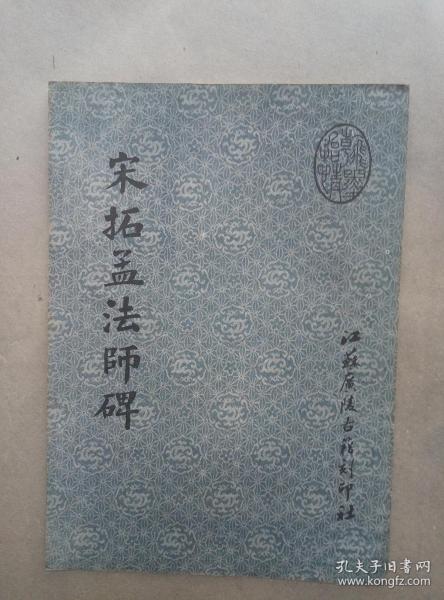 宋拓孟法師碑
江蘇廣陵古籍刻印社
孔夫子旧书网
www.kongfz.com